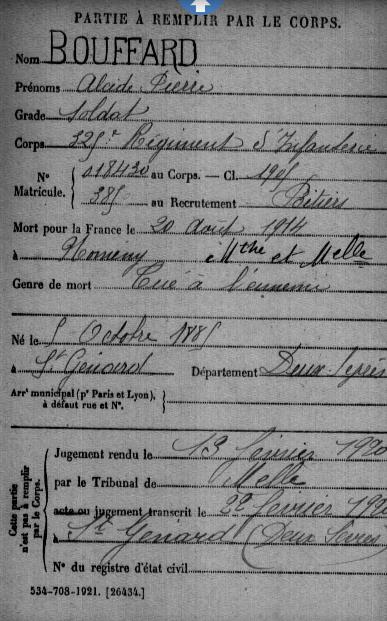 PARTIE À REMPLIR PAR LE CORPS.
Nom BOUFFARD
Prénoms Alcide Pierre
Grade Soldat
Corps 325e Régiment d'Infanterie
N° Matricule. { 018430 au Corps. — Cl. 1905
385 au Recrutement Poitiers
Mort pour la France le 20 Août 1914
à Nomeny Mthe et Melle
Genre de mort Tué à l'ennemi
Né le 5 Octobre 1885
à St Génard Département Deux-Sèvres
Arrt municipal (pr Paris et Lyon), à défaut rue et N°. {
Cette partie n'est pas à remplir par le Corps.
Jugement rendu le 13 février 1920
par le Tribunal de Melle
acte ou jugement transcrit le 22 février 192
à St Génard (Deux Sèvres
N° du registre d'état civil
534-708-1921. [26434.]